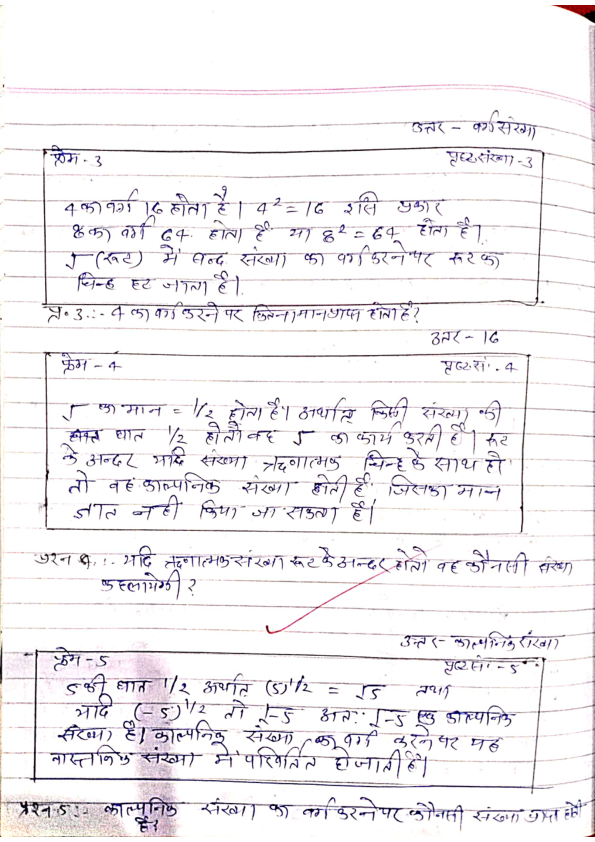 उत्तर - वर्ग संख्या
फ्रेम - 3 पृष्ठ संख्या - 3
4 का वर्ग 16 होता है। 4² = 16 इसी प्रकार
8 का वर्ग 64 होता है या 8² = 64 होता है।
√ (रूट) में बन्द संख्या का वर्ग करने पर रूट का
चिन्ह हट जाता है।
प्र. 3 :- 4 का वर्ग करने पर कितना मान प्राप्त होता है?
उत्तर - 16
फ्रेम - 4 पृष्ठ सं. 4
√ का मान = 1/2 होता है। अर्थात किसी संख्या की
घात 1/2 हो तो वह √ का कार्य करती है। रूट
के अन्दर यदि संख्या ऋणात्मक चिन्ह के साथ हो
तो वह काल्पनिक संख्या होती है जिसका मान
ज्ञात नही किया जा सकता है।
प्रश्न 4 :- यदि ऋणात्मक संख्या रूट के अन्दर हो तो वह कौनसी संख्या
कहलायेगी ?
उत्तर - काल्पनिक संख्या
फ्रेम - 5 पृष्ठ सं - 5
5 की घात 1/2 अर्थात (5)^1/2 = √5 तथा
यदि (-5)^1/2 तो √-5 अतः √-5 एक काल्पनिक
संख्या है। काल्पनिक संख्या का वर्ग करने पर यह
वास्तविक संख्या में परिवर्तित हो जाती है।
प्रश्न 5 :- काल्पनिक संख्या का वर्ग करने पर कौनसी संख्या प्राप्त होती
है?